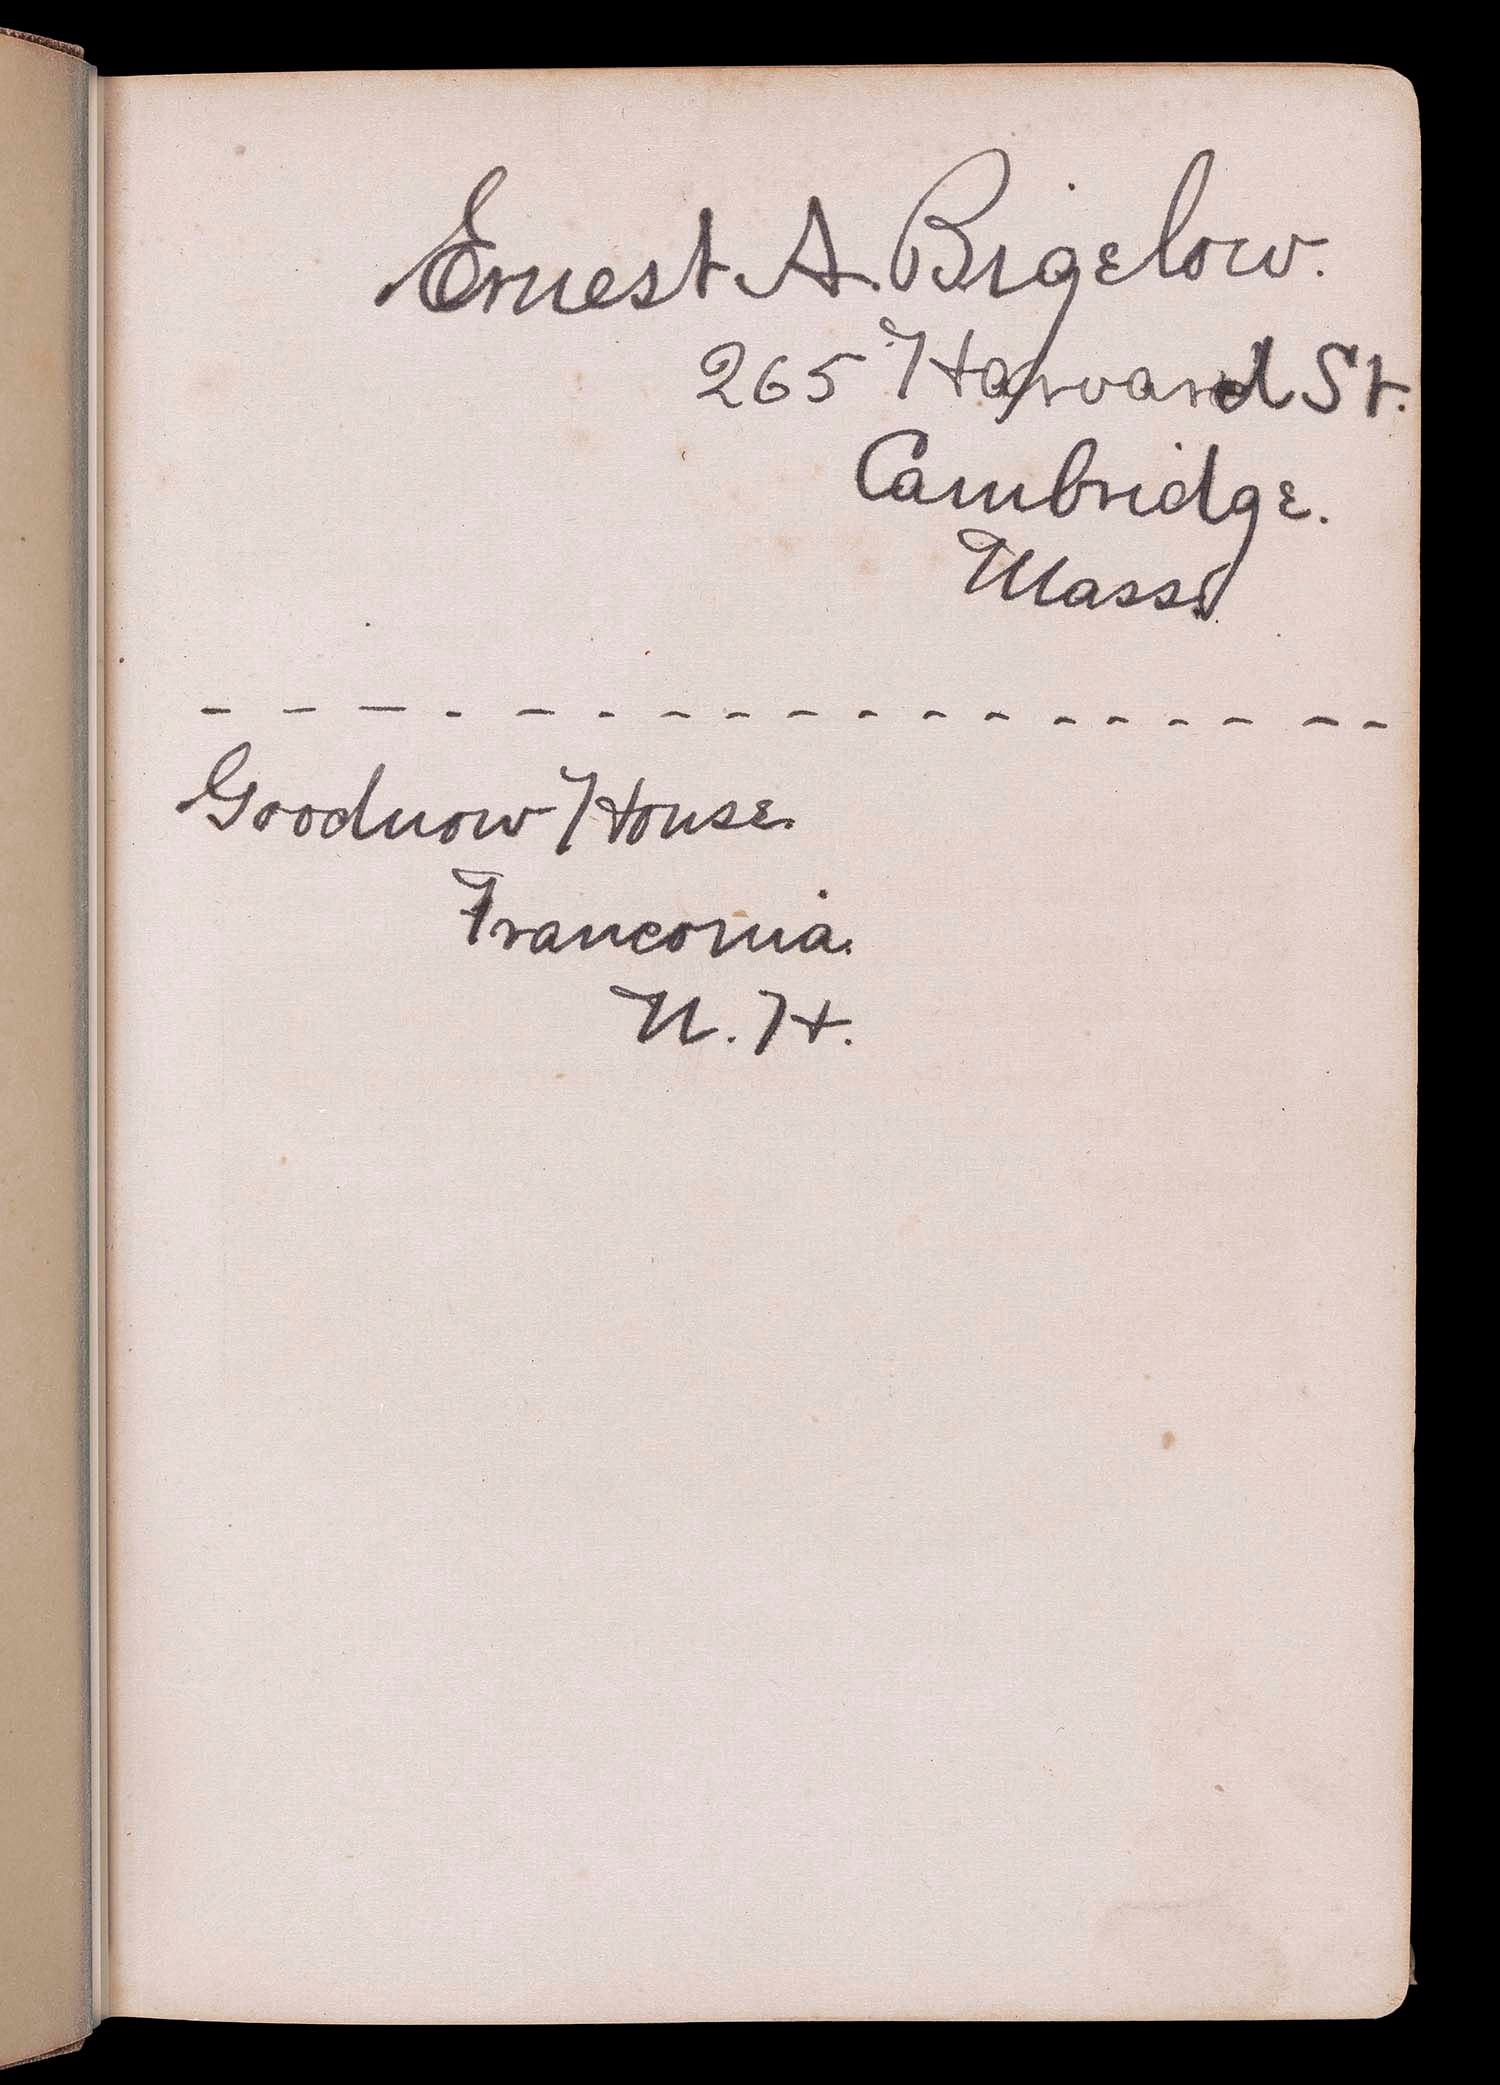 Ernest A. Bigelow.
265 Harvard St.
Cambridge.
Mass.
Goodnow House.
Franconia.
N. H.